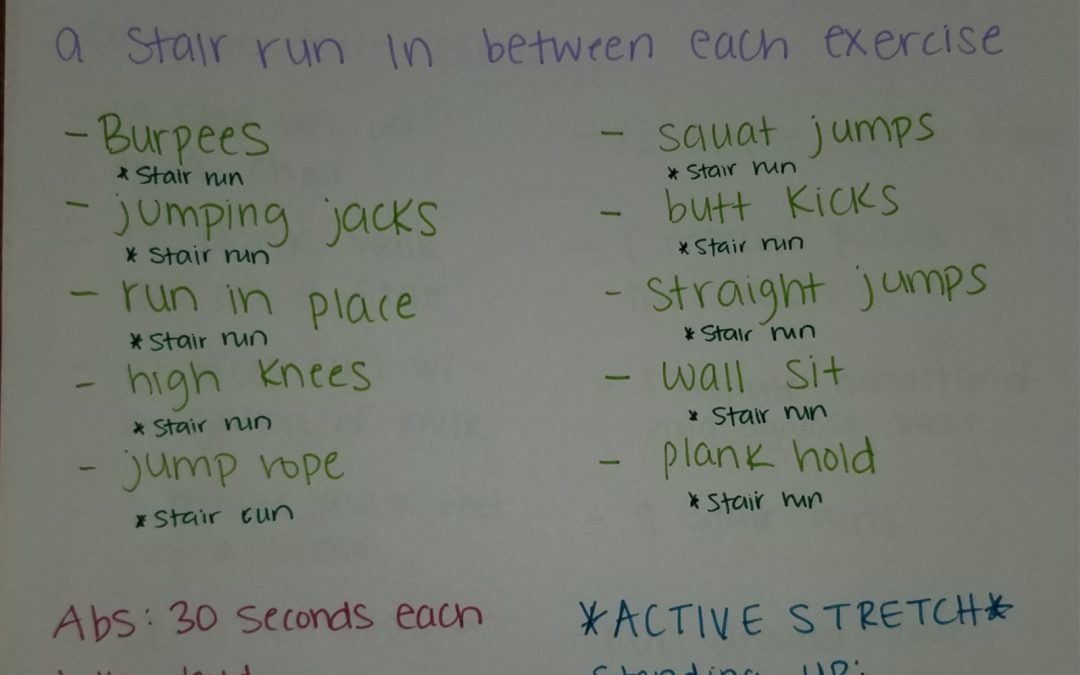 a stair run in between each exercise
- Burpees
* Stair run
- jumping jacks
* Stair run
- run in place
* Stair run
- high knees
* Stair run
- jump rope
* Stair run
- squat jumps
* Stair run
- butt kicks
* Stair run
- straight jumps
* Stair run
- wall sit
* Stair run
- plank hold
* Stair run
Abs: 30 seconds each
*ACTIVE STRETCH*
Standing up: